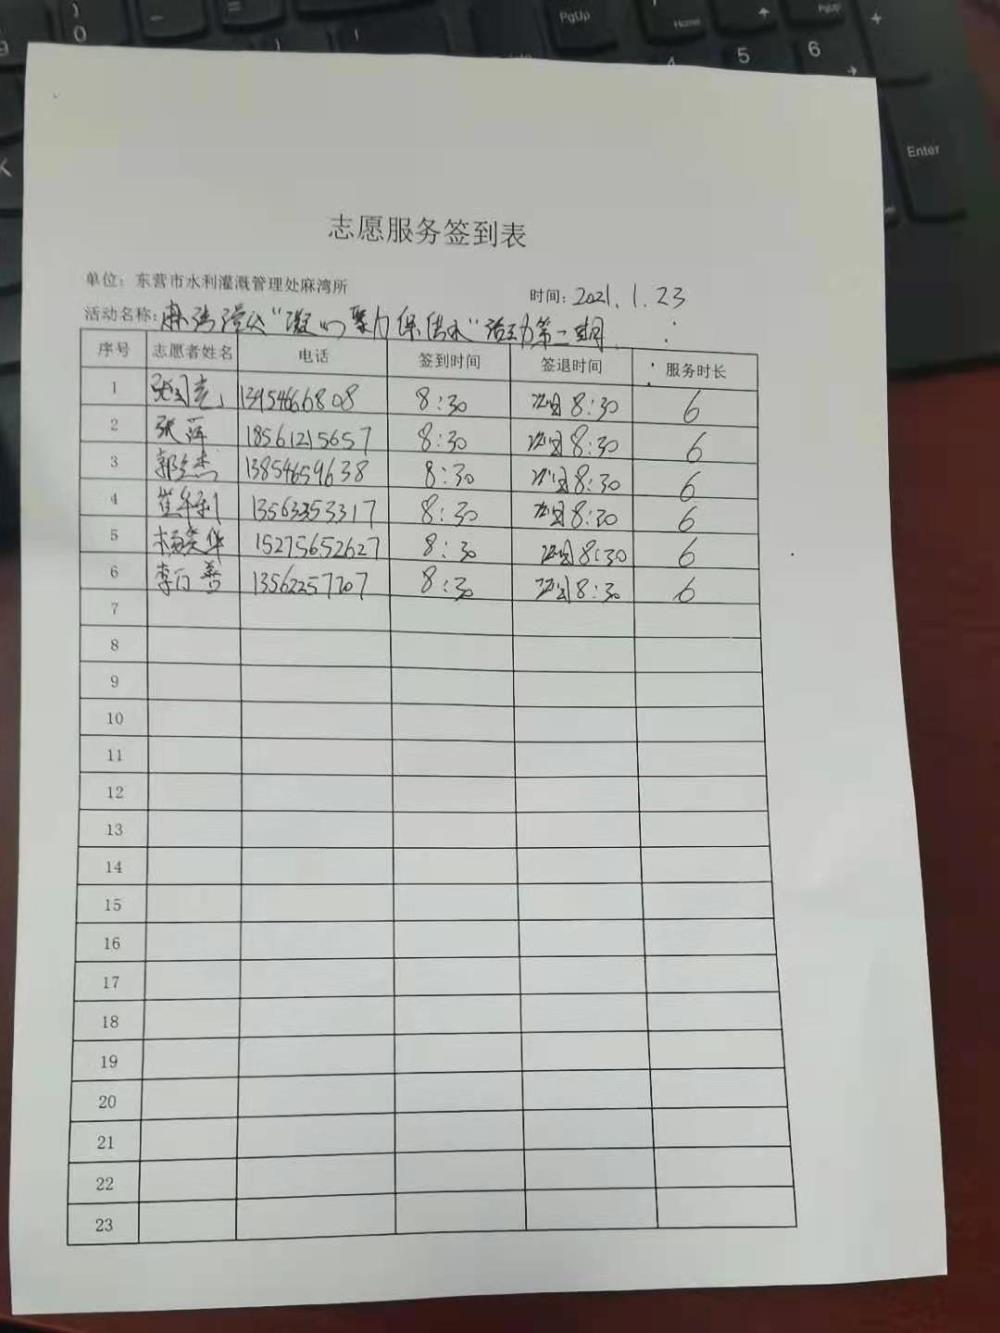 志愿服务签到表
单位：东营市水利灌溉管理处麻湾所
时间：2021.1.23
活动名称：麻湾 "凝心聚力保供水"活动第二期
序号 志愿者姓名 电话 签到时间 签退时间 服务时长
1 8:30 次日8:30 6
2 张萍 18561215657 8:30 次日8:30 6
3 13854659638 8:30 次日8:30 6
4 13563353317 8:30 次日8:30 6
5 15275652627 8:30 次日8:30 6
6 李百善 13562257707 8:30 次日8:30 6
7
8
9
10
11
12
13
14
15
16
17
18
19
20
21
22
23
PgUp
Home
PgUp
0
4
5
6
Enter